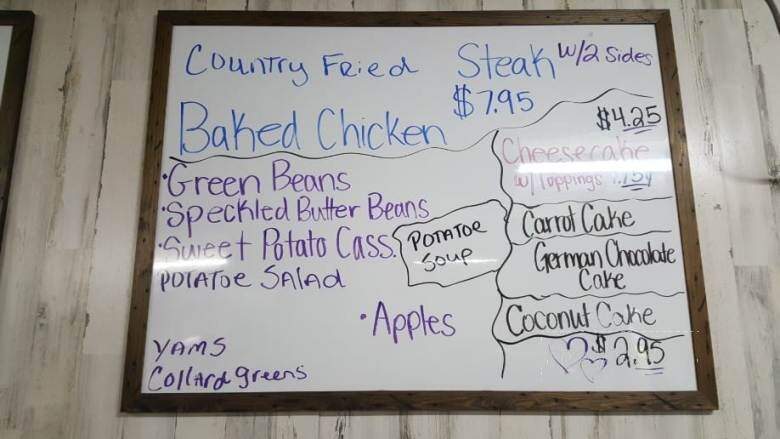 Country Fried Steak w/2 Sides
$7.95
Baked Chicken
•Green Beans
•Speckled Butter Beans
•Sweet Potato Cass.
POTATOE SALAD
•Apples
YAMS
Collard greens
POTATOE
Soup
$4.25
Cheesecake
w/Toppings
Carrot Cake
German Chocolate
Cake
Coconut Cake
$2.95